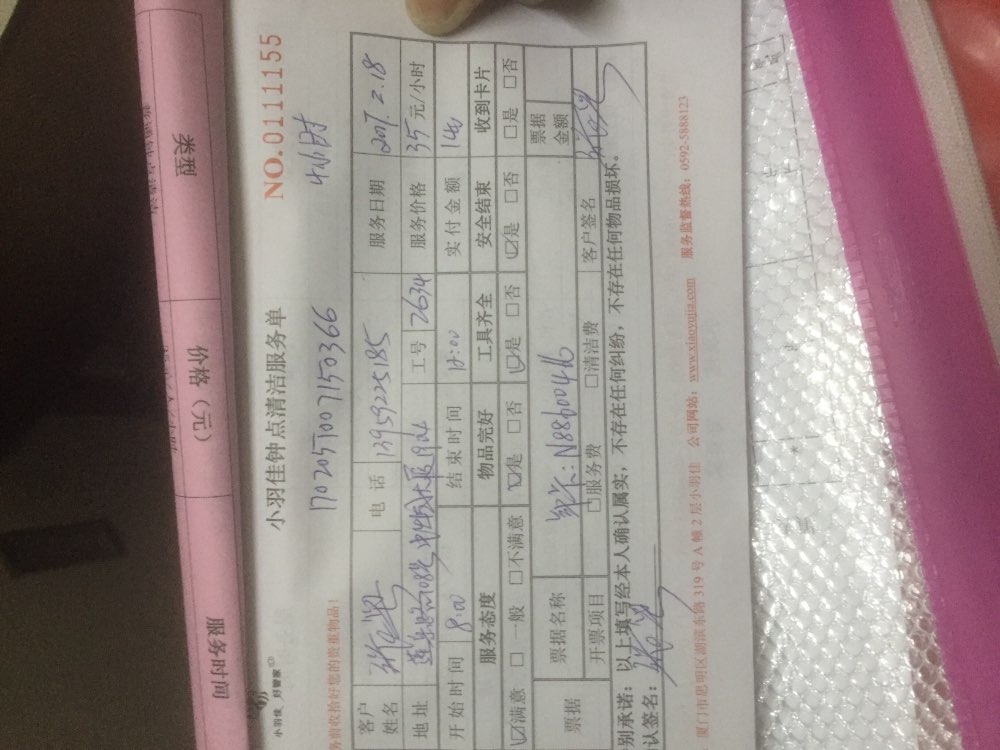 类型
价格（元）
服务时间
小羽佳 好管家
小羽佳钟点清洁服务单
NO.0111155
务前收拾好您的贵重物品！
1702051007150366
4小时
客户姓名
电话 13959225185
服务日期 2017.2.18
地址
工号 2634
服务价格 35元/小时
开始时间 8:00
结束时间 12:00
实付金额 140
服务态度
物品完好
工具齐全
安全结束
收到卡片
☑满意 □一般 □不满意
☑是 □否
☑是 □否
☑是 □否
□是 □否
票据
票据名称
N8860046
票据金额
开票项目
□服务费 □清洁费
客户签名
别承诺：以上填写经本人确认属实，不存在任何纠纷，不存在任何物品损坏。
认签名：
厦门市思明区湖滨东路319号A幢2层小羽佳 公司网站：www.xiaoyujia.com 服务监督热线：0592-5888123